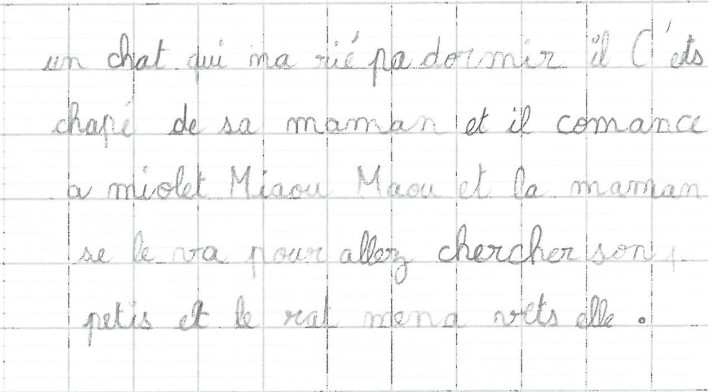 un chat qui ma rié pa dormir il C'ets
chapé de sa maman et il comance
a miolet Miaou Maou et la maman
se le va pour allerz chercher son
petis et le rat mena vets elle.